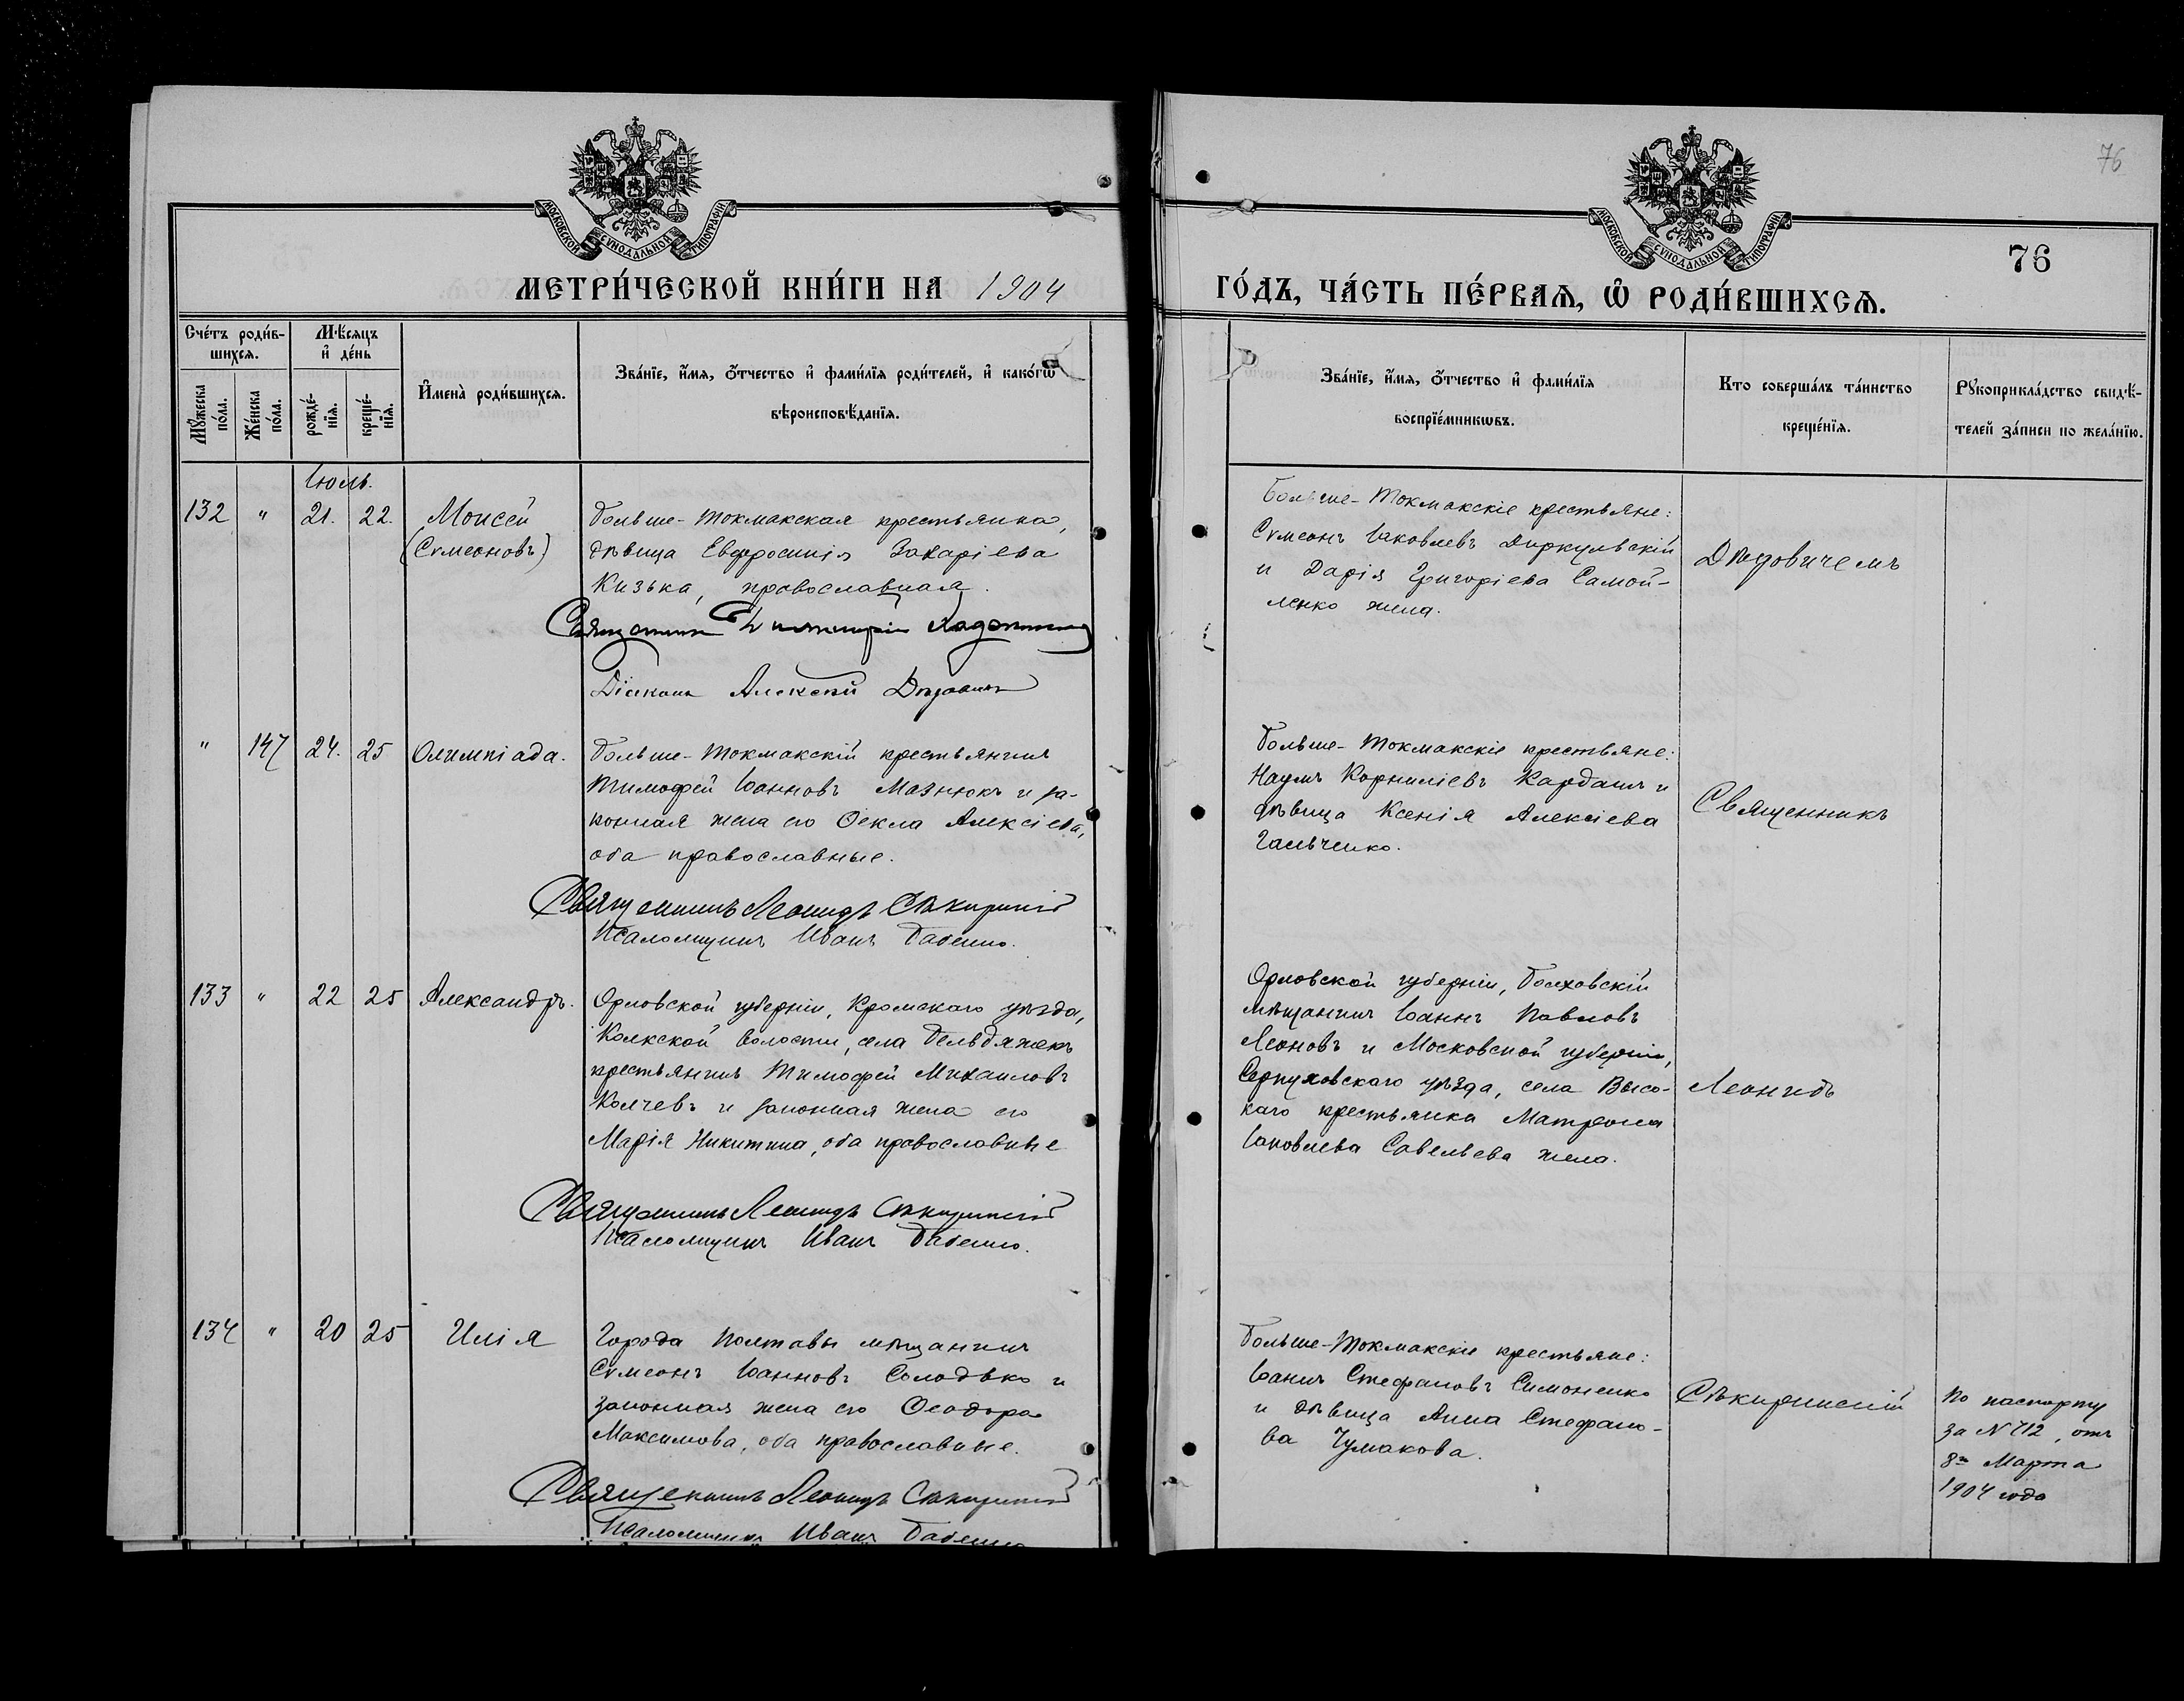 76
МОСКОВСКОЙ СѴНОДАЛЬНОЙ ТИПОГРАФІИ
МОСКОВСКОЙ СѴНОДАЛЬНОЙ ТИПОГРАФІИ
76
МЕТРИ́ЧЕСКОЙ КНИ́ГИ НА 1904
ГО́ДЪ, ЧА́СТЬ ПЕ́РВАѦ, Ѡ РОДИ́ВШИХСѦ.
Сче́тъ роди́в-
шихсѧ.
Мꙋ́жеска по́ла.
Же́нска по́ла.
Мѣ́сѧцъ
и҆ де́нь
рожде́-
нїѧ.
креще́-
нїѧ.
И҆мена̀ роди́вшихсѧ.
Зва́нїе, и҆́мѧ, ѻ҆́тчество и҆ фами́лїѧ роди́телей, и҆ како́гѡ
вѣроисповѣ́данїѧ.
Зва́нїе, и҆́мѧ, ѻ҆́тчество и҆ фами́лїѧ
воспрїе́мникѡвъ.
Кто соверша́лъ та́инство
креще́нїѧ.
Рꙋкоприкла́дство свидѣ́-
телей за́писи по жела́нїю.
Іюль.
132 " 21. 22. Моисей
(Сѵмеоновъ)
Больше-Токмакская крестьянка,
дѣвица Евфросинія Захаріева
Кизька, православная.
Священникъ
Діаконъ Алексѣй Дѣдовичъ
Больше-Токмакскіе крестьяне:
Сѵмеонъ Іаковлевъ Диркульскій
и Дарія Григоріева Самой-
ленко жена.
Дѣдовичемъ
" 147 24. 25 Олимпіада.
Больше-Токмакскій крестьянинъ
Тимофей Іоанновъ Мазнюкъ и за-
конная жена его Ѳекла Алексіева,
оба православные.
Священникъ Леонидъ Сѣкиринскій
Псаломщикъ Иванъ Бабенко.
Больше-Токмакскіе крестьяне:
Наумъ Корниліевъ Карданъ и
дѣвица Ксенія Алексіева
Гальченко.
Священникъ
133 " 22 25 Александръ.
Орловской губерніи, Кромскаго уѣзда,
Колкской волости, села Бельдяжекъ
крестьянинъ Тимофей Михаиловъ
Колчевъ и законная жена его
Марія Никитина, оба православные
Священникъ Леонидъ Сѣкиринскій
Псаломщикъ Иванъ Бабенко.
Орловской губерніи, Болховскій
мѣщанинъ Іоаннъ Павловъ
Леоновъ и Московской губерніи,
Серпуховскаго уѣзда, села Высо-
каго крестьянка Матрона
Іаковлева Савельева жена.
Леонидъ
134 " 20 25 Илія
Города Полтавы мѣщанинъ
Сѵмеонъ Іоанновъ Солодько и
законная жена его Ѳеодора
Максимова, оба православные.
Священникъ Леонидъ Сѣкиринскій
Псаломщикъ Иванъ Бабенко
Больше-Токмакскіе крестьяне:
Іоаннъ Стефановъ Симоненко
и дѣвица Анна Стефано-
ва Чумакова.
Сѣкиринскій
По паспорту
за N 712, отъ
8го Марта
1904 года